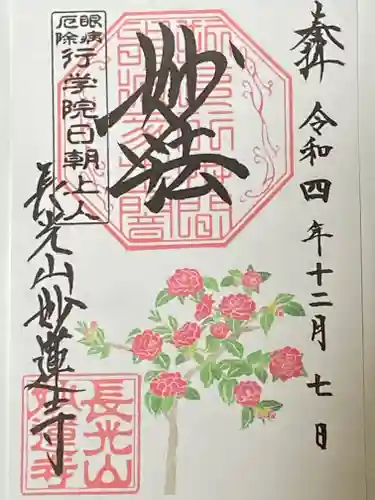 奉拝
令和四年十二月七日
妙法
眼病
厄除
行学院日朝上人
長光山妙蓮寺
長光山
妙蓮寺